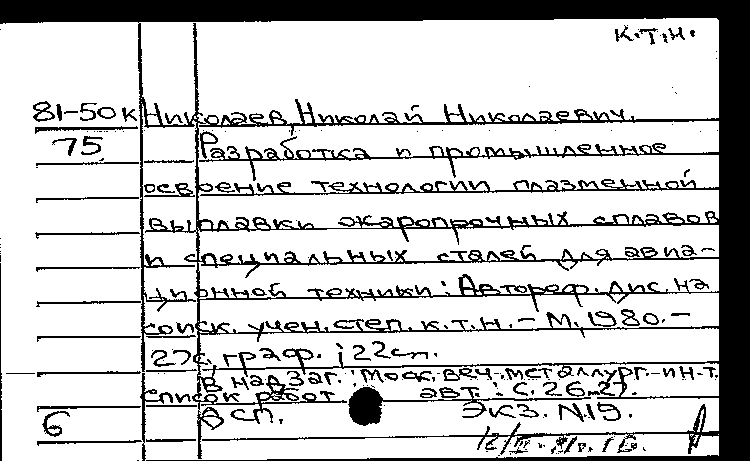 К.Т.Н.
81-50к Николаев, Николай Николаевич.
75 Разработка и промышленное
освоение технологии плазменной
выплавки жаропрочных сплавов
и специальных сталей для авиа-
ционной техники: Автореф. дис. на
соиск. учен. степ. к.т.н. - М, 1980. -
27с, граф. ; 22см.
В надзаг.: Моск. веч. металлург. ин-т.
список работ авт.: с. 26-27.
6 В сп. Экз. N19.